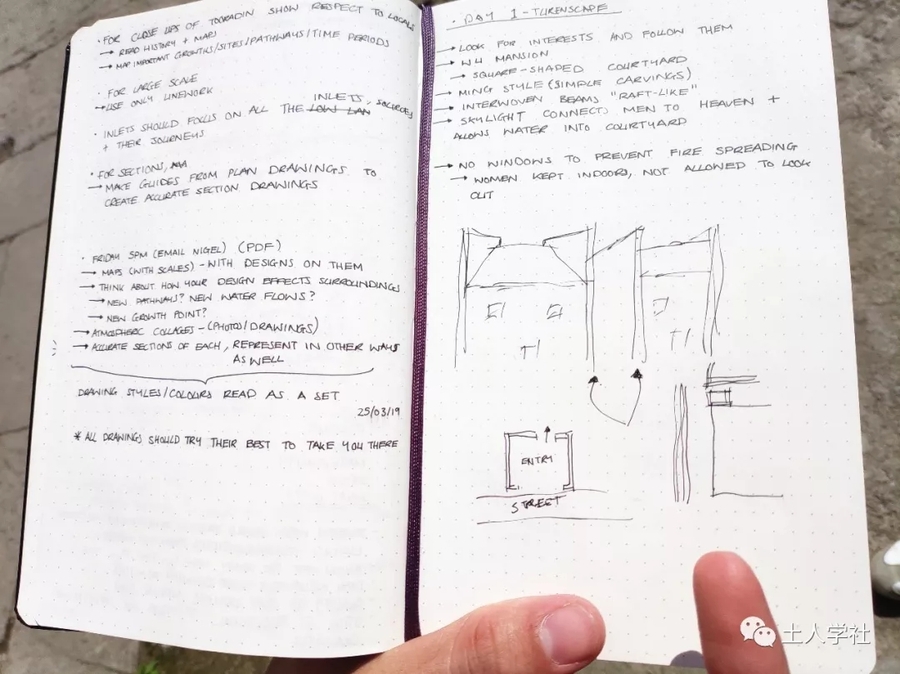 · FOR CLOSE UPS OF TOORADIN SHOW RESPECT TO LOCALS
→ READ HISTORY + MAPS
→ MAP IMPORTANT GROWTHS/SITES/PATHWAYS/TIME PERIODS
· FOR LARGE SCALE
→ USE ONLY LINEWORK
· INLETS SHOULD FOCUS ON ALL THE LOW LAN INLETS,
+ THEIR JOURNEYS
· FOR SECTIONS,
→ MAKE GUIDES FROM PLAN DRAWINGS TO
CREATE ACCURATE SECTION DRAWINGS
· FRIDAY 5PM (EMAIL NIGEL) (PDF)
→ MAPS (WITH SCALES) - WITH DESIGNS ON THEM
→ THINK ABOUT HOW YOUR DESIGN EFFECTS SURROUNDINGS
→ NEW PATHWAYS? NEW WATER FLOWS?
→ NEW GROWTH POINT?
→ ATMOSPHERIC COLLAGES - (PHOTOS/DRAWINGS)
→ ACCURATE SECTIONS OF EACH, REPRESENT IN OTHER WAYS
AS WELL
DRAWING STYLES/COLOURS READ AS A SET
25/03/19
* ALL DRAWINGS SHOULD TRY THEIR BEST TO TAKE YOU THERE
· DAY 1 - TURENSCAPE
→ LOOK FOR INTERESTS AND FOLLOW THEM
→ WU MANSION
→ SQUARE-SHAPED COURTYARD
→ MING STYLE (SIMPLE CARVINGS)
→ INTERWOVEN BEAMS "RAFT-LIKE"
→ SKYLIGHT CONNECTS MEN TO HEAVEN +
ALLOWS WATER INTO COURTYARD
→ NO WINDOWS TO PREVENT FIRE SPREADING
→ WOMEN KEPT INDOORS, NOT ALLOWED TO LOOK
OUT
ENTRY
STREET
土人学社